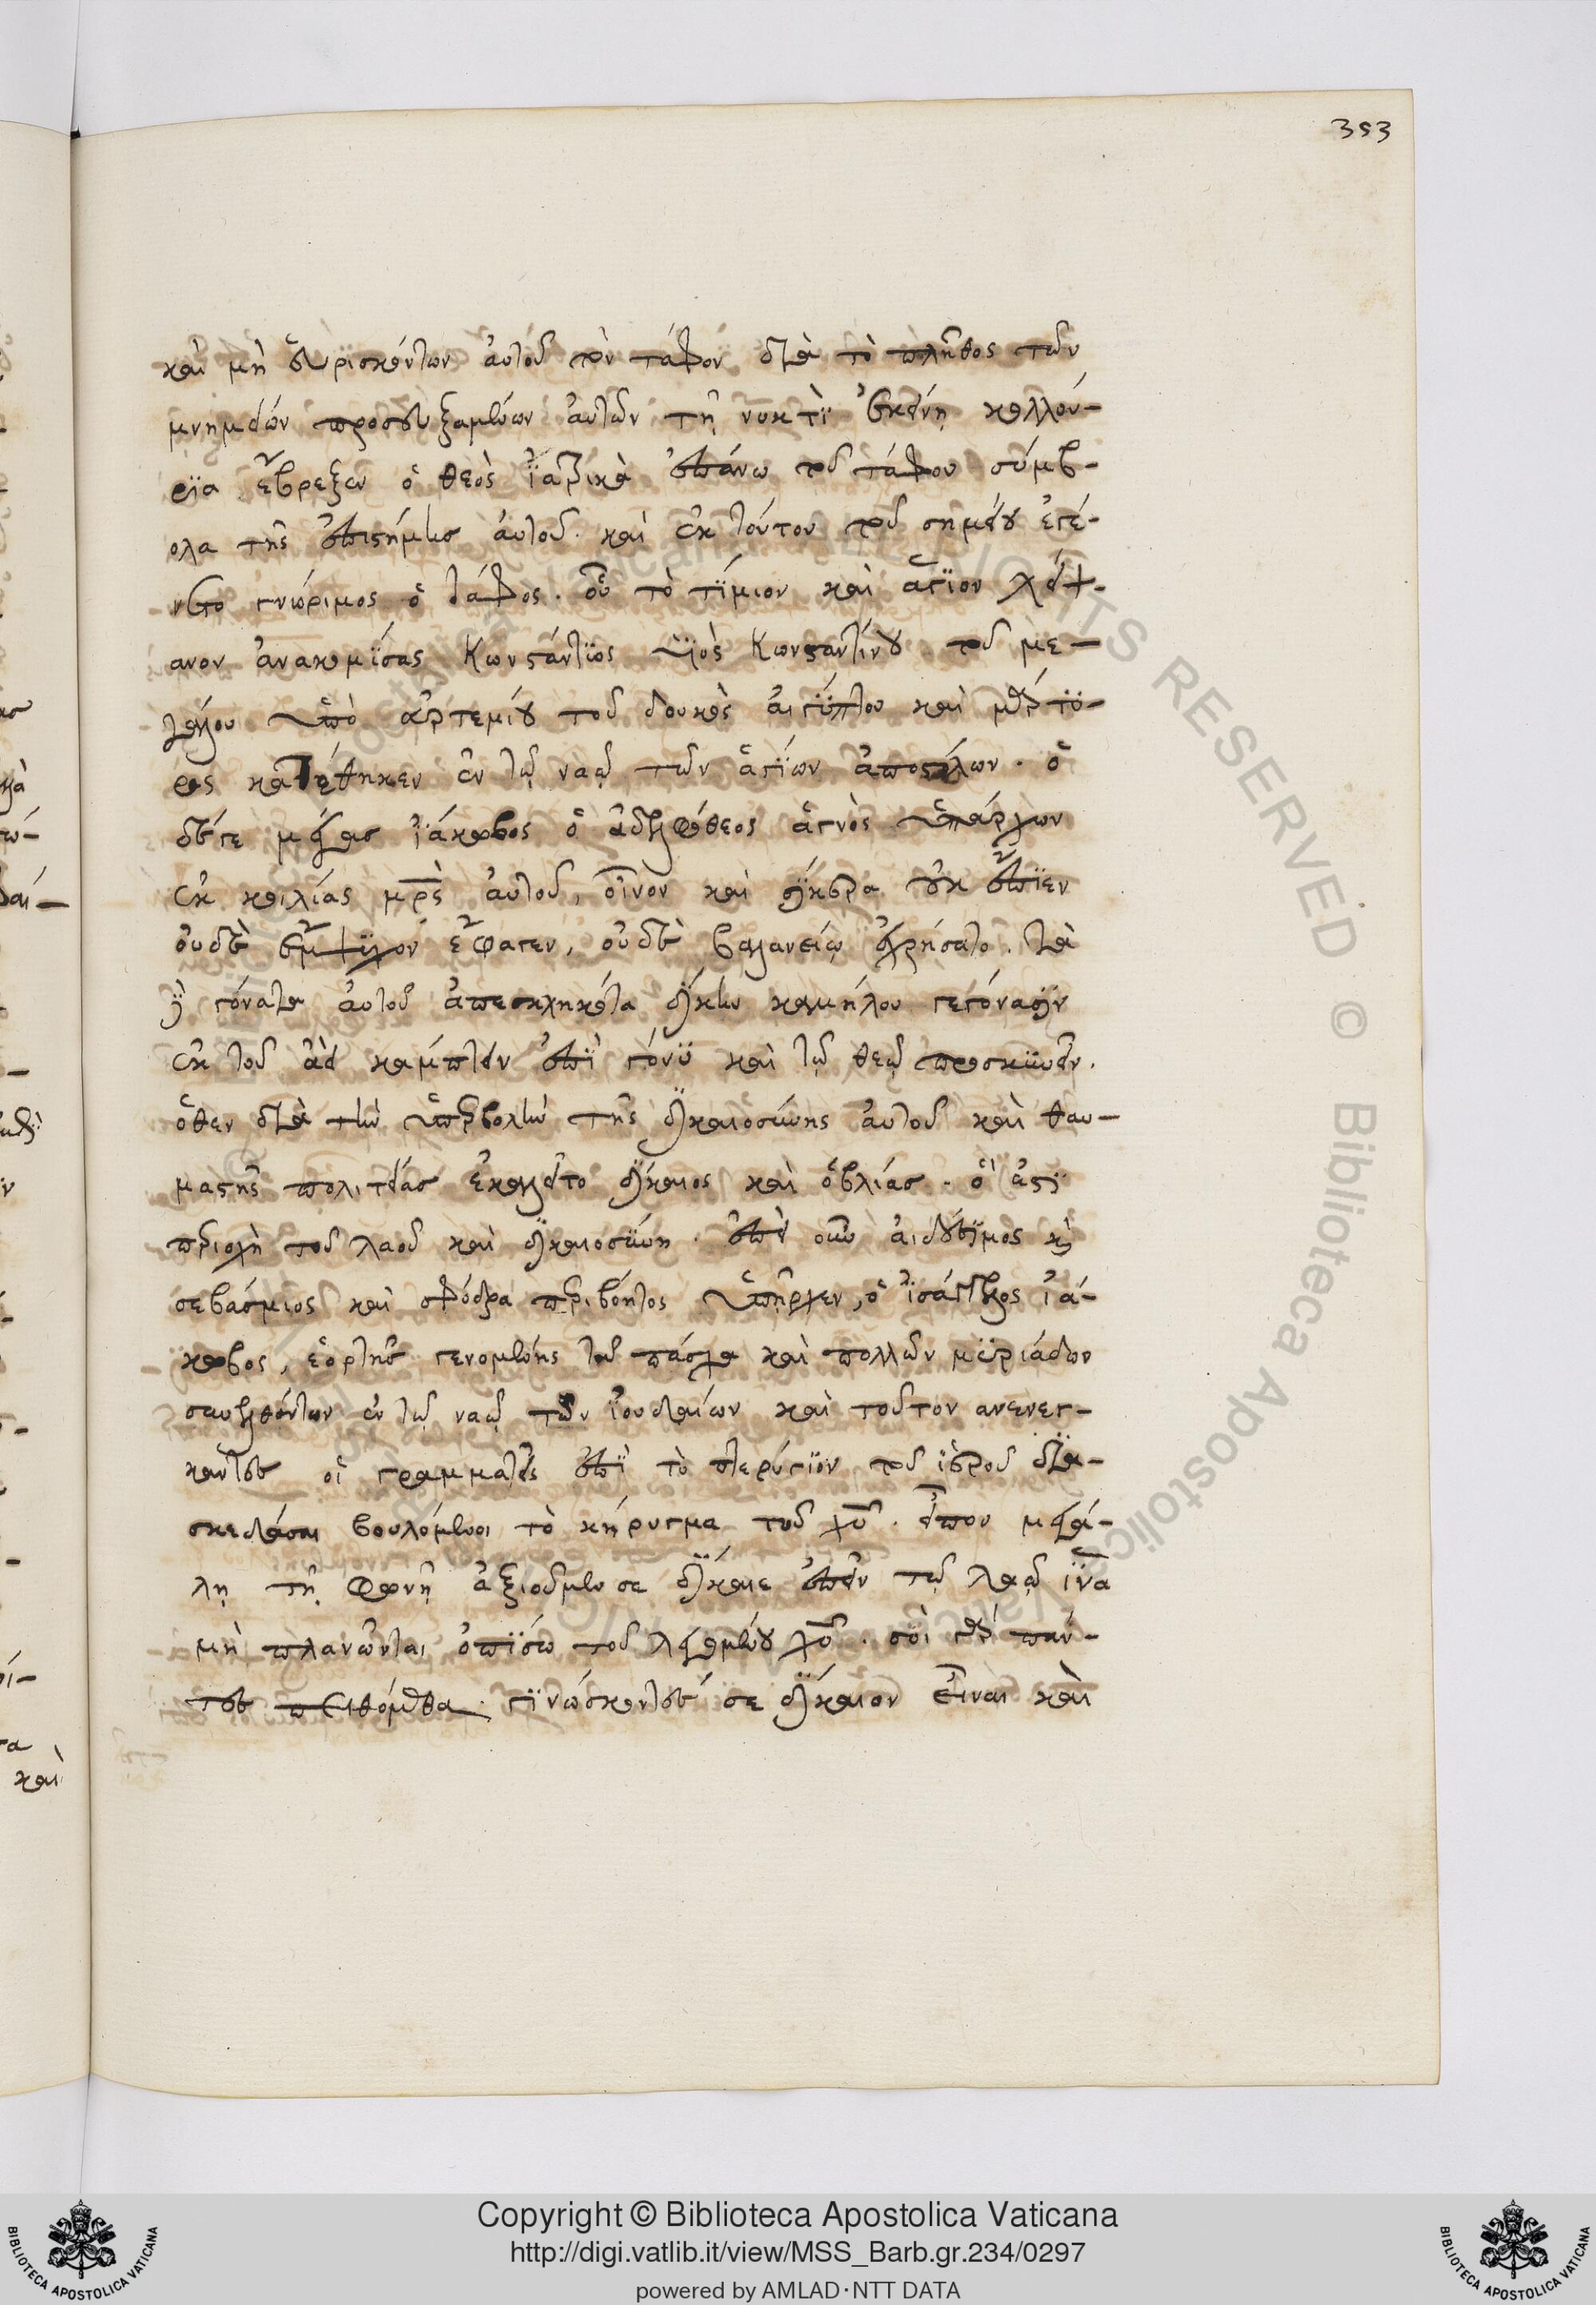 353
καὶ μὴ εὑρϊσκόντων αὐτοῦ τὸν τάφον διὰ τὸ πλῆθος τῶν
μνημείων προσευξαμένων αὐτῶν τῆ νυκτῒ ἐκείνη κολλού-
ρϊα ἔβρεξεν ὁ θεὸς ἰατρικὰ ἐπάνω τοῦ τάφου σύμβ-
ολα τῆς ἐπιστήμης αὐτοῦ. καὶ ἐκ τούτου τοῦ σημείου ἐγέ-
νετο γνώριμος ὁ τάφος. οὗ τὸ τίμιον καὶ ἅγϊον λείψ-
ανον ἀνακομΐσας Κωνστάντϊος ϋἱὸς Κωνσταντίνου τοῦ με-
γάλου ὑπὸ ἀρτεμίου τοῦ δουκὸς αἰγύπτου καὶ μάρτϋ-
ρος κατέθηκεν ἐν τῷ ναῷ τῶν ἁγΐων ἀποστόλων. ὁ
δέ γε μέγας ἰάκωβος ὁ ἀδελφόθεος ἁγνὸς ὑπάρχων
ἐκ κοιλίας μρς αὐτοῦ, οἶνον καὶ σΐκερα οὐκ ἔπϊεν
οὐδὲ ἔμψϋχον ἔφαγεν, οὐδὲ βαλανείῳ ἐχρήσατο. τὰ
δὲ γόνατα αὐτοῦ ἀπεσκληκότα δΐκην καμήλου γεγόνασϊν
ἐκ τοῦ ἀεὶ κάμπτειν ἐπῒ γόνϋ καὶ τῷ θεῷ προσκϋνεῖν.
ὅθεν διὰ τὴν ὑπερβολὴν τῆς δϊκαιοσύνης αὐτοῦ καὶ θαυ-
μαστῆς πολιτείας ἐκαλεῖτο δΐκαιος καὶ ὀβλίας. ὅ ἐστϊ
περιοχὴ τοῦ λαοῦ καὶ δϊκαιοσύνη. ἐπεὶ οὖν ἀιδέσϊμος κὶ
σεβάσμιος καὶ σφόδρα περιβόητος ὑπῆρχεν, ὁ ἰσάγγελος ἰά-
κωβος, ἑορτῆς γενομένης τοῦ πάσχα καὶ πολλῶν μϋριάδων
συνελθόντων ἐν τῷ ναῷ τῶν ἰουδαίων καὶ τοῦτον ανενεγ-
καντες οἱ γραμματεῖς ἐπῒ τὸ πτερύγϊον τοῦ ἱεροῦ δϊα-
σκεδάσαι βουλόμενοι τὸ κήρυγμα τοῦ χυ. εἶπον μεγά-
λη τῆ φωνῆ ἀξιοῦμεν σε δΐκαιε εἰπεῖν τῷ λαῷ ἵνα
μὴ πλανῶνται ὀπΐσω τοῦ λεγομένου χυ. σοὶ γὰρ πάν-
τες πειθόμεθα. γϊνώσκοντές σε δΐκαιον εἶναι καὶ
Copyright © Biblioteca Apostolica Vaticana
http://digi.vatlib.it/view/MSS_Barb.gr.234/0297
powered by AMLAD·NTT DATA